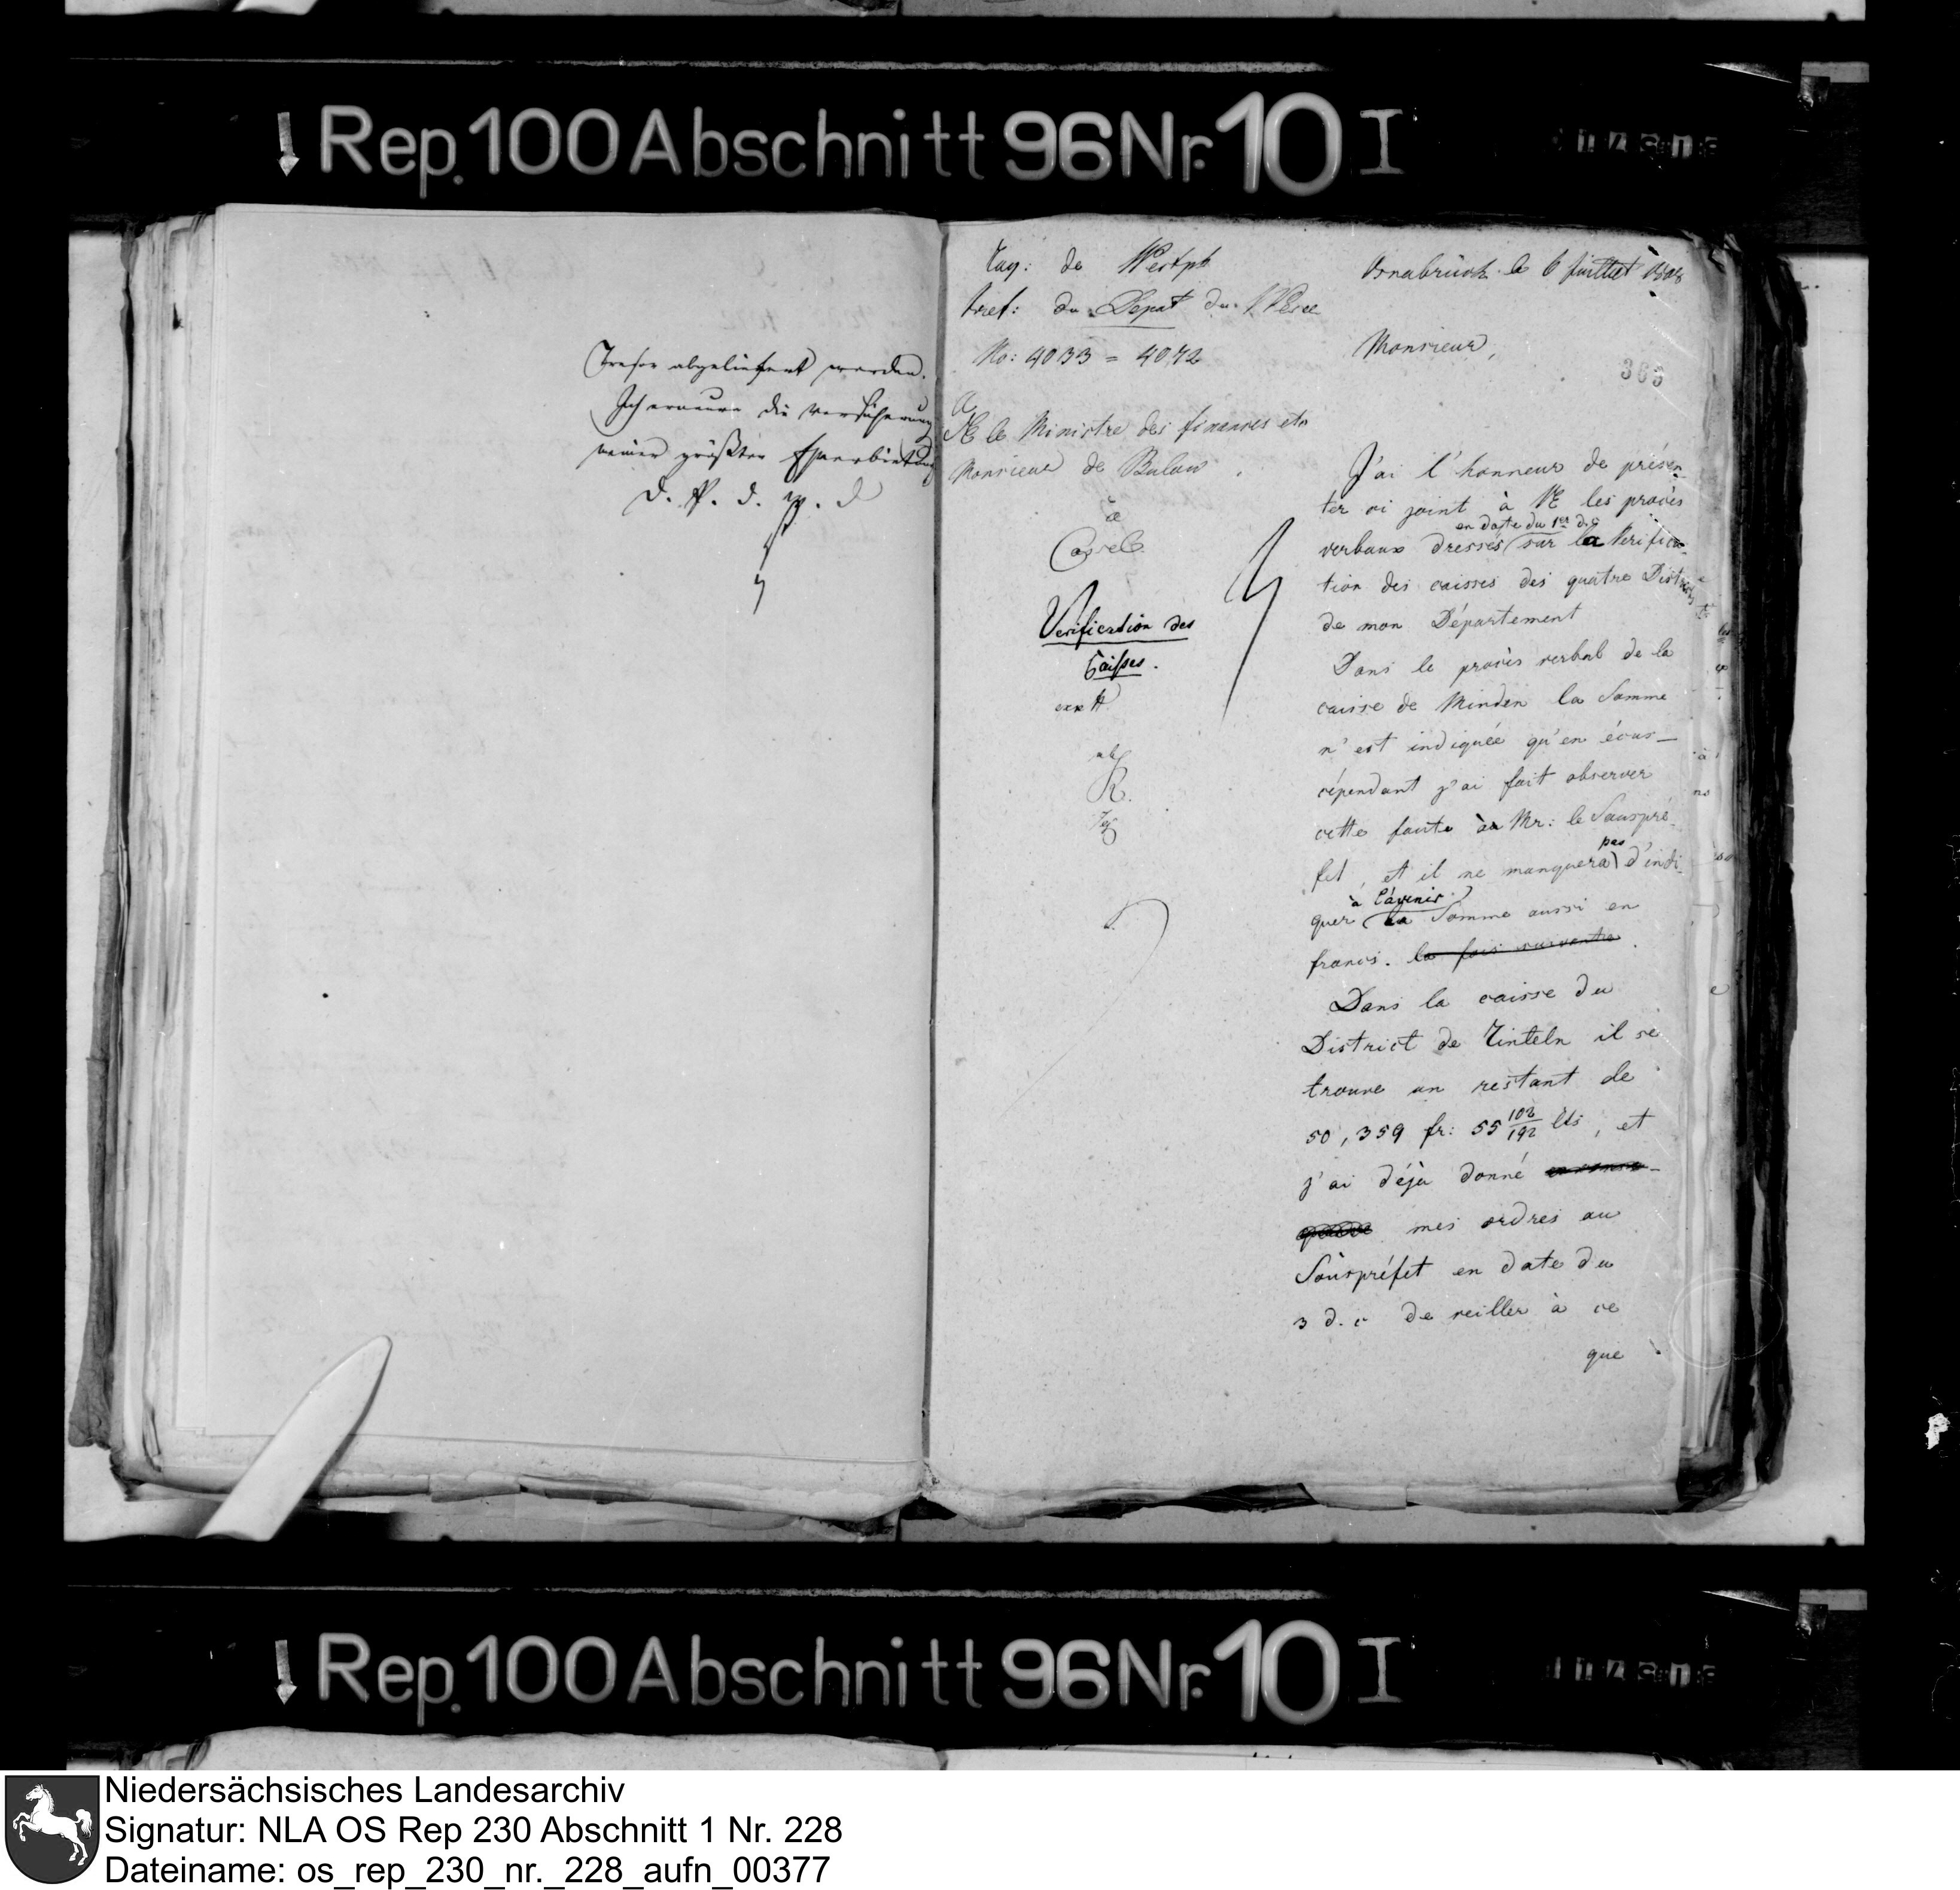 Rep. 100 Abschnitt 96 Nr. 10 I
Tresor abgeliefert worden.
Ich erneure die Versicherung
meiner größten Ehrerbietung
D. P. d. W. D
Roy: de Westph
Pref: du Depat du Weser
No: 4033 = 4072
a
SE le Ministre des finances etc
Monsieur de Bulow
à
Cassel
Verification des
Caisses.
exp
abg
R.
Osnabrück le 6 Juillet 1808
Monsieur,
363
J'ai l'honneur de présen-
ter ci joint à VE les procès
en date du 1er d. c
verbaux dressés sur la Verifica-
tion des caisses des quatre Districts
de mon Département
Dans le procès verbal de la
caisse de Minden la Somme
n'est indiquée qu'en écus —
cépendant j'ai fait observer
cette faute à Mr: le Souspré-
pas
fet, et il ne manquera d'indi-
à l'avenir
quer la Somme aussi en
francs. la fois suivante.
Dans la caisse du
District de Rinteln il se
trouve un restant de
50,359 fr: 55 102/192 Cts, et
j'ai déjà donné
mes ordres au
Souspréfet en date du
3 d. c de veiller à ce
que
Rep. 100 Abschnitt 96 Nr. 10 I
Niedersächsisches Landesarchiv
Signatur: NLA OS Rep 230 Abschnitt 1 Nr. 228
Dateiname: os_rep_230_nr._228_aufn_00377